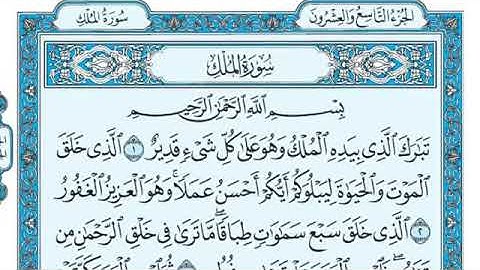 سُورَةُ المُلْكِ
الجُزْءُ التَّاسِعُ وَالعِشْرُونَ
سُورَةُ المُلْكِ
بِسْمِ ٱللَّهِ ٱلرَّحْمَٰنِ ٱلرَّحِيمِ
تَبَٰرَكَ ٱلَّذِى بِيَدِهِ ٱلْمُلْكُ وَهُوَ عَلَىٰ كُلِّ شَىْءٍ قَدِيرٌ ١ ٱلَّذِى خَلَقَ
ٱلْمَوْتَ وَٱلْحَيَوٰةَ لِيَبْلُوَكُمْ أَيُّكُمْ أَحْسَنُ عَمَلًا ۚ وَهُوَ ٱلْعَزِيزُ ٱلْغَفُورُ
٢ ٱلَّذِى خَلَقَ سَبْعَ سَمَٰوَٰتٍ طِبَاقًا ۖ مَّا تَرَىٰ فِى خَلْقِ ٱلرَّحْمَٰنِ مِن